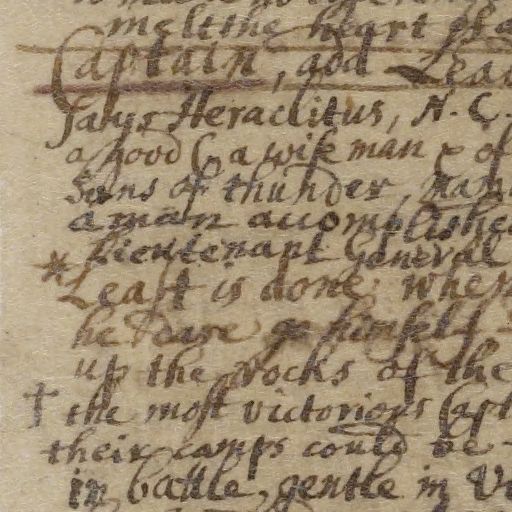 melt the heart
Captain, and Lea
says Heraclitus, N. C.
a good C, a wise man & of
Sons of thunder, nam
a man accomplished
Lieutenant General
* Least is done when
he dare himself
up the rocks of the
† the most victorious Capt
their camps could be
in battle, gentle in Vi